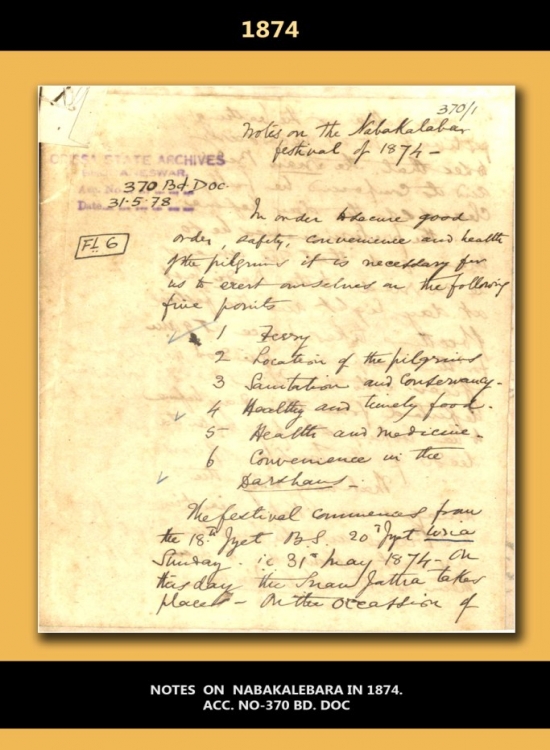 1874
370/1
Notes on the Nabakalabar
festival of 1874 -
ORISSA STATE ARCHIVES
BHUBANESWAR.
Acc. No. 370 Bd. Doc.
Date 31-5-78
Fl. 6
In order to secure good
order, safety, convenience and health
of the pilgrims it is necessary for
us to exert ourselves on the following
five points
1 Ferry
2 Location of the pilgrims
3 Sanitation and Conservancy -
4 Healthy and timely food -
5 Health and medicine -
6 Convenience in the
Darshans -
The festival commences from
the 18th Jyet B.S. 20th Jyet Uria
Sunday. ie 31st May 1874 - On
this day the Snan Jattra takes
place - On the occassion of
NOTES ON NABAKALEBARA IN 1874.
ACC. NO-370 BD. DOC